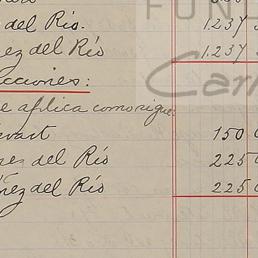 FUN
del Río. 1.237
ez del Río 1.237
Carl
cciones:
e aplica como sigue:
evart 150
rez del Río 225
ñez del Río 225